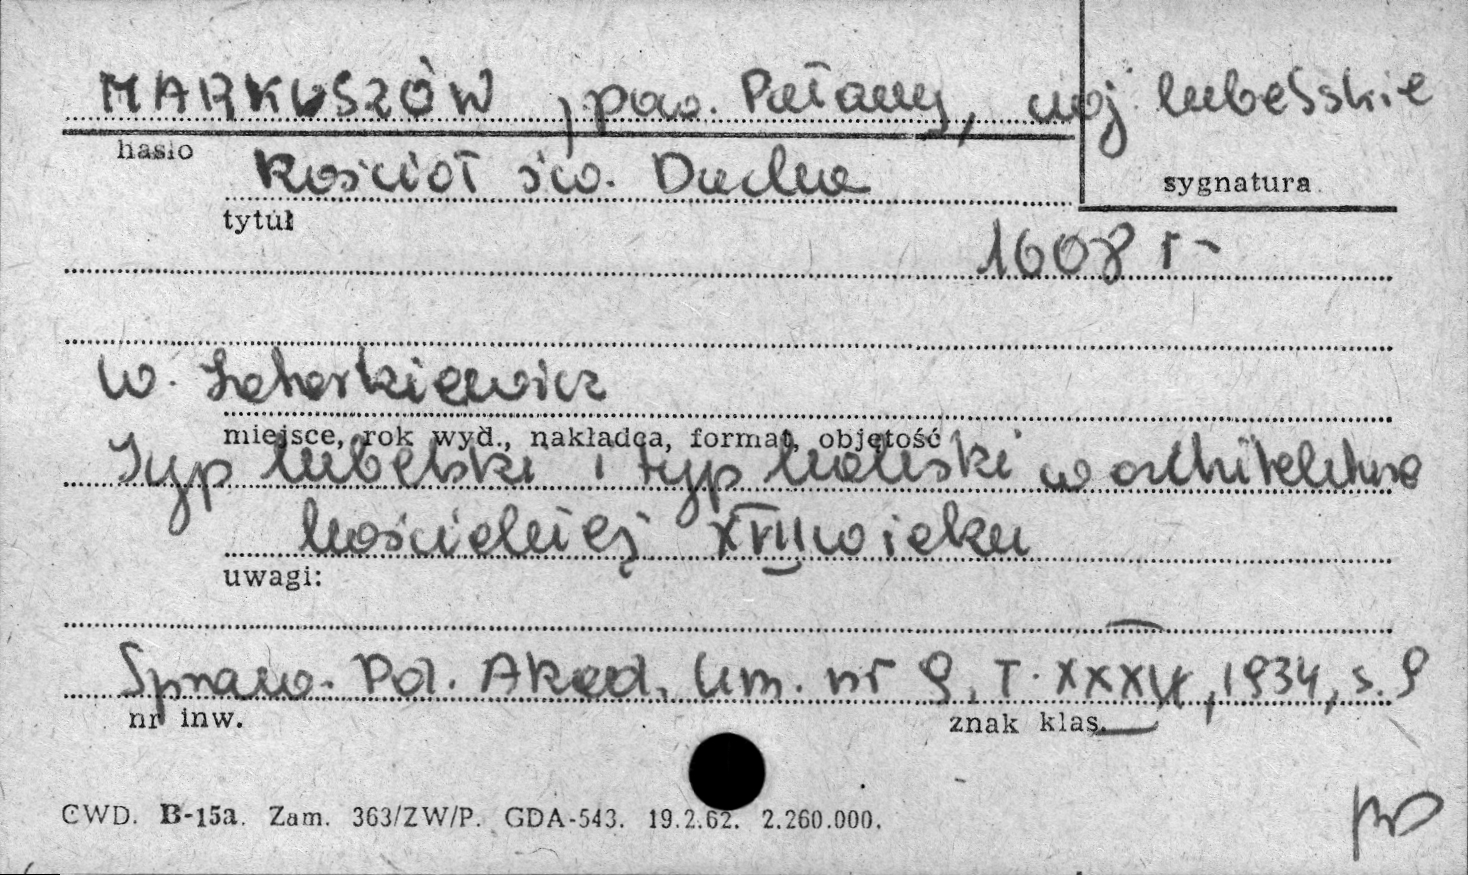 MARKUSZÓW, pow. Puławy, woj. lubelskie
hasło
Kościół św. Ducha
sygnatura
tytuł
1608 r.
W. Zahorkiewicz
miejsce, rok wyd., nakładca, format, objętość
Typ lubelski i typ kaliski w architekturze
kościelnej XVII wieku
uwagi:
Spraw. Pol. Akad. Um. nr 9, T. XXXIX, 1934, s. 9
nr inw.
znak klas.
CWD. B-15a. Zam. 363/ZW/P. GDA-543. 19.2.62. 2.260.000.